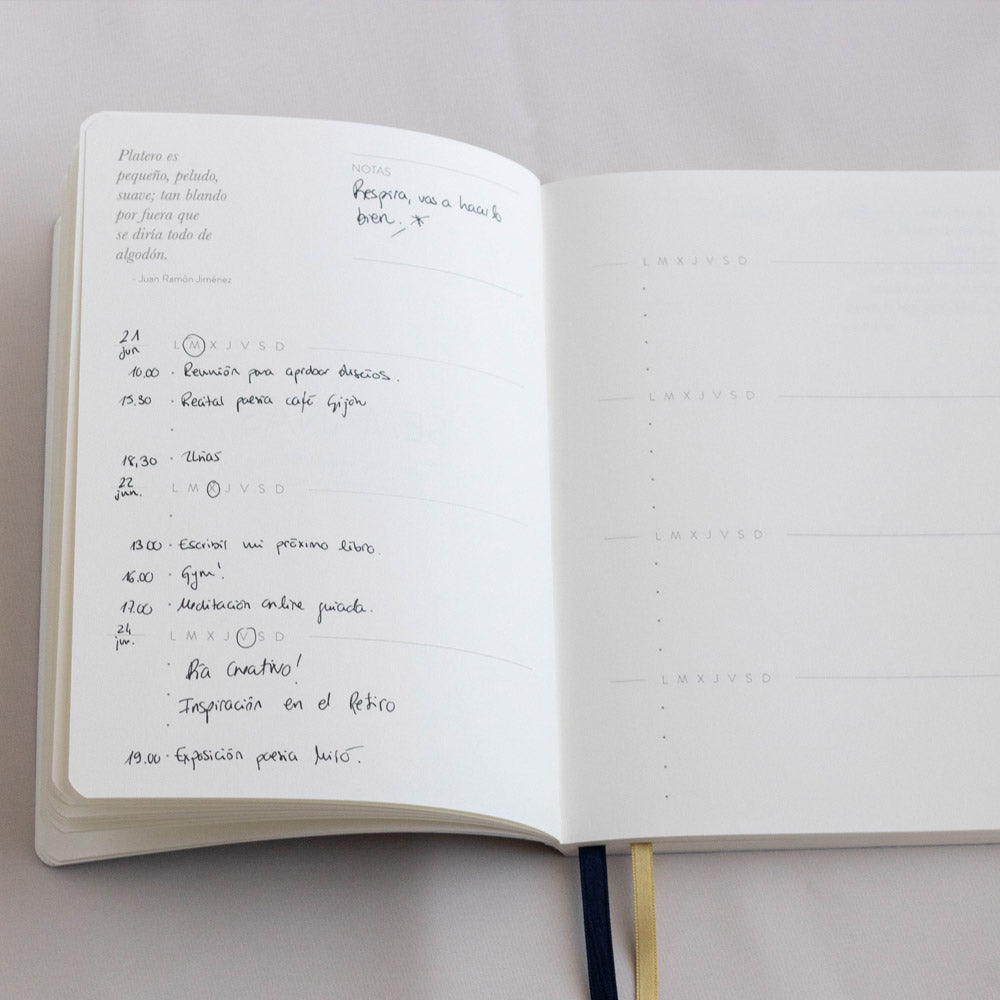 Platero es
pequeño, peludo,
suave; tan blando
por fuera que
se diría todo de
algodón.
- Juan Ramón Jiménez
NOTAS
Respira, vas a hacerlo
bien. *
21
jun
L M X J V S D
10.00 · Reunión para aprobar diseños.
15.30 · Recital poesia café Gijón
18,30 · Uñas
22
jun.
L M X J V S D
13.00 · Escribir mi próximo libro.
16.00 · Gym!
17.00 · Meditación online guiada.
24
jun.
L M X J V S D
Día Creativo!
Inspiración en el Retiro
19.00 · Exposición poesia Miró.
L M X J V S D
L M X J V S D
L M X J V S D
L M X J V S D